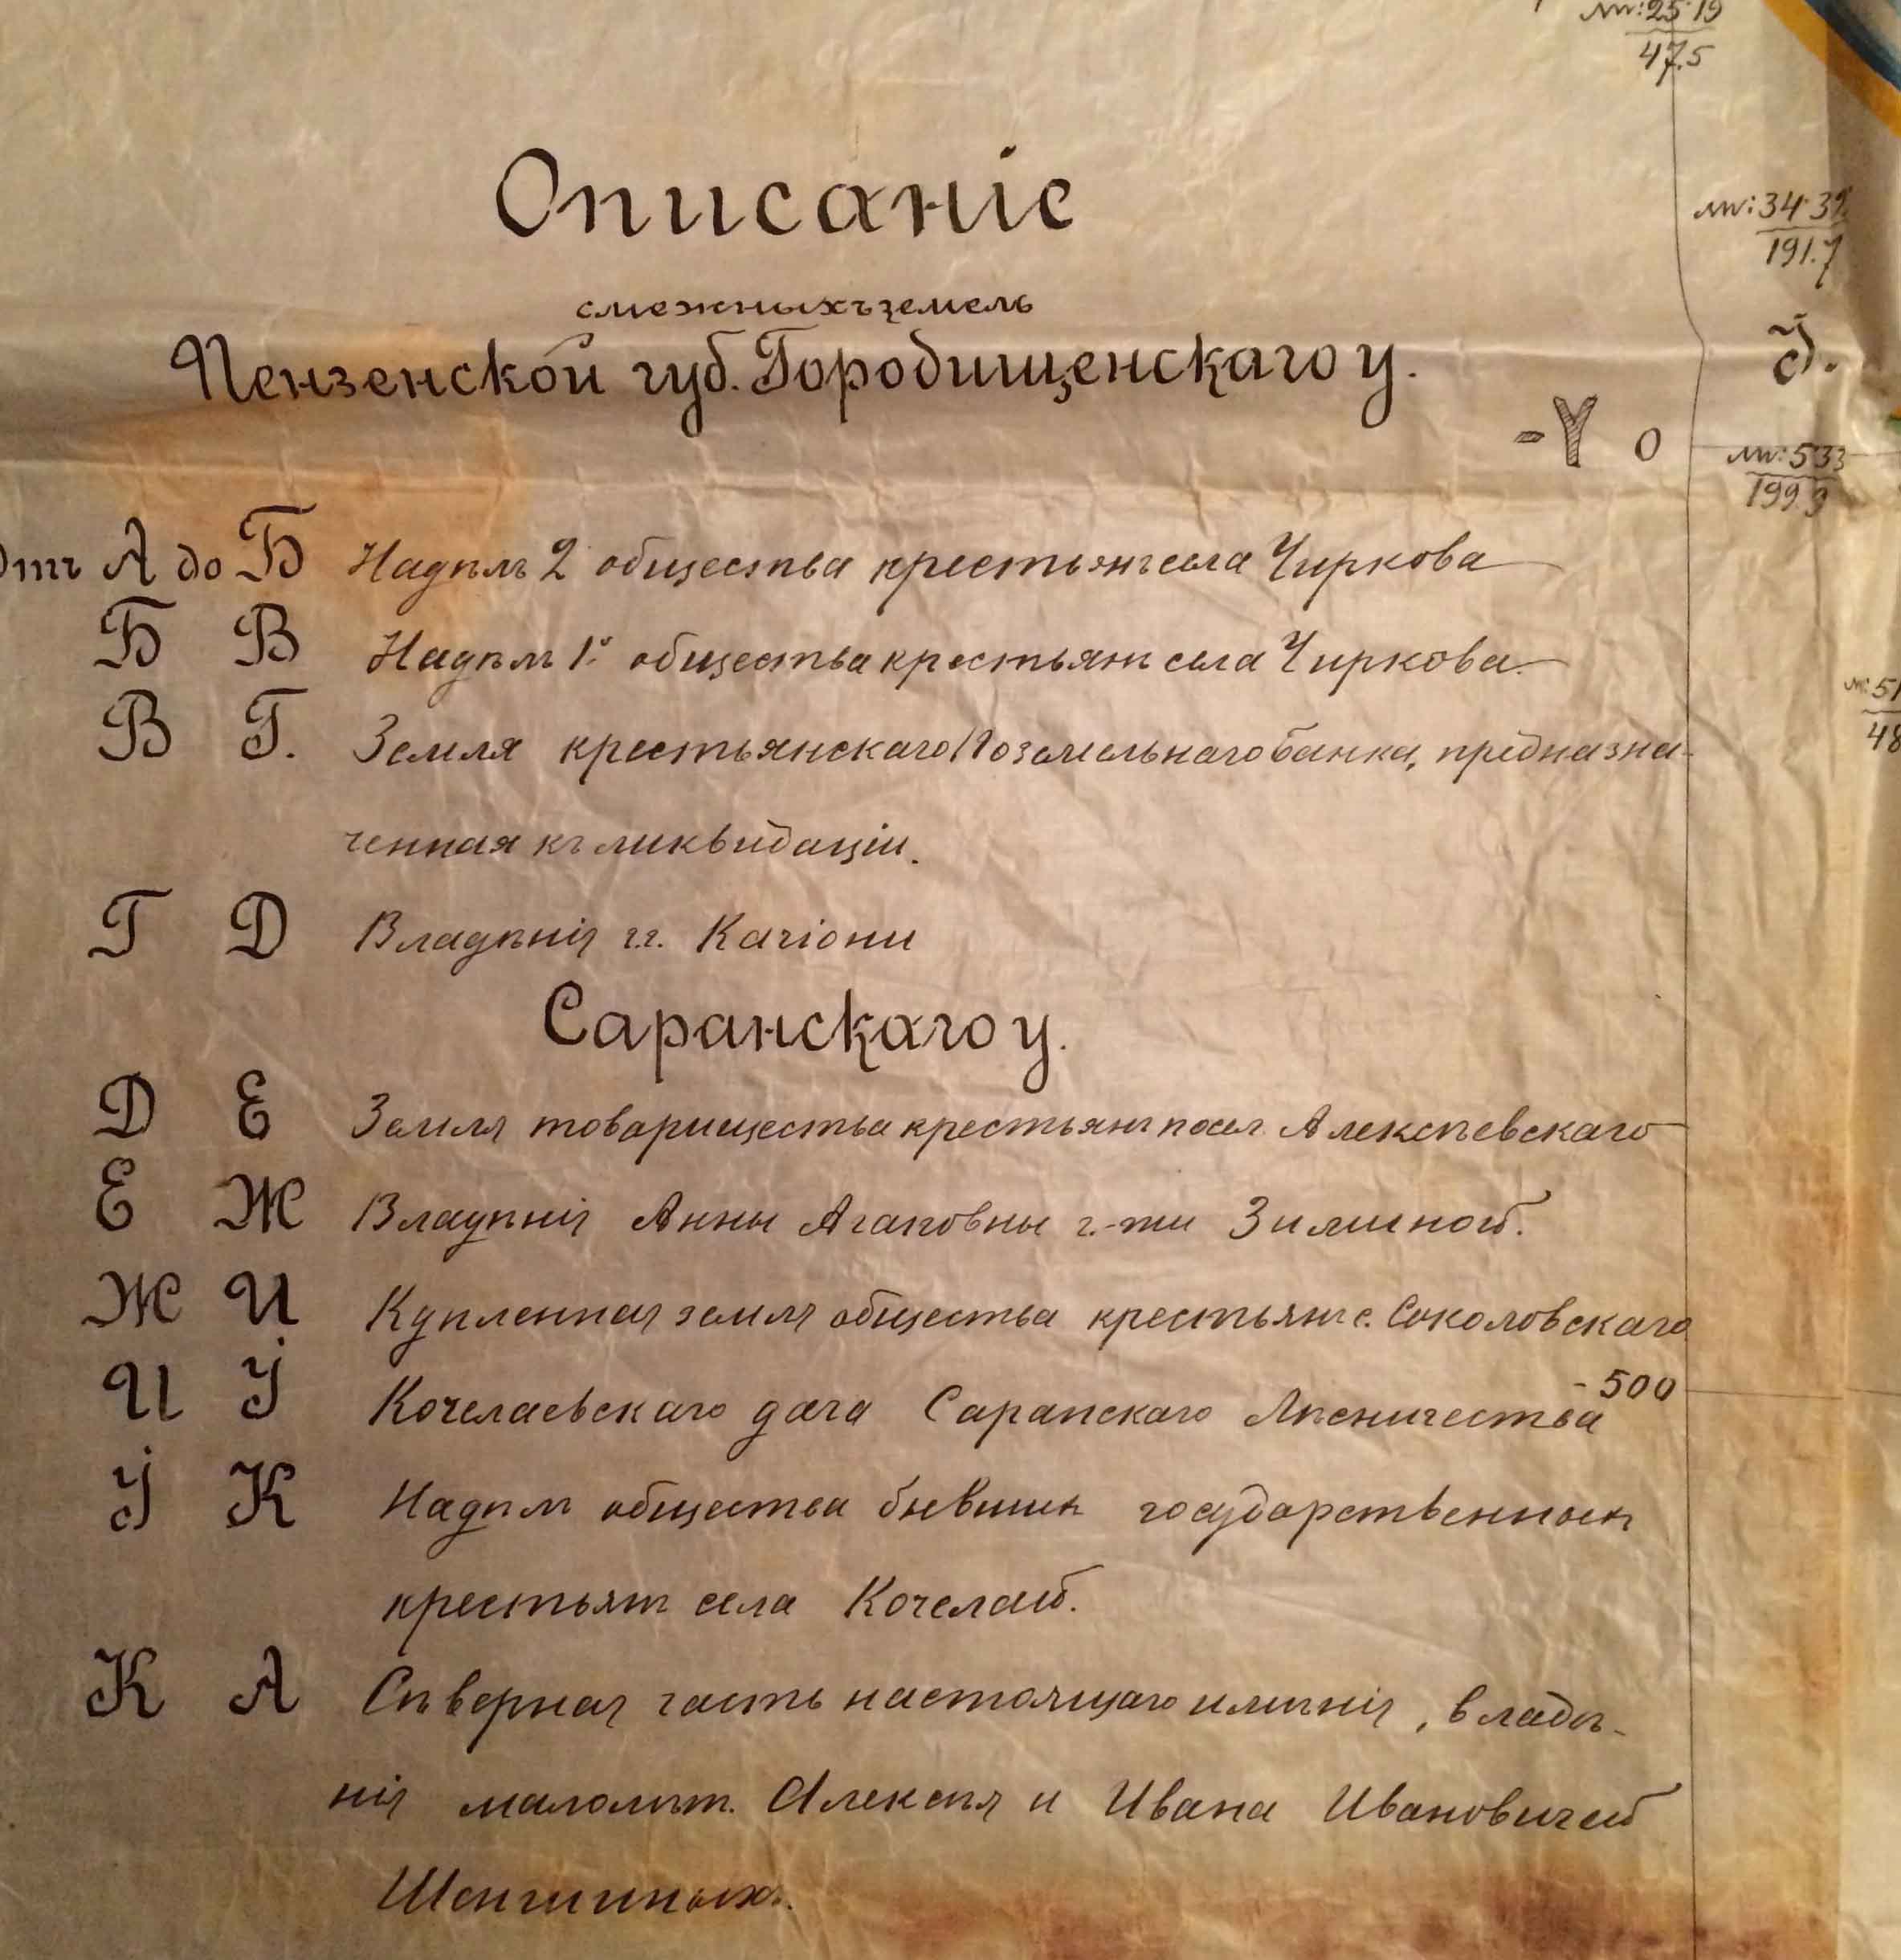 лл:25·19
47.5
Описаніе
лл:34·39
191.7
смежныхъ земель
Пензенской губ. Городищенскаго у.
-Y 0
лл:5 33
199.9
Отъ А до Б Надѣлъ 2 общества крестьянъ села Чиркова
Б В Надѣлъ 1го общества крестьянъ села Чиркова
В Г. Земля крестьянскаго Поземельнаго банка, предназна-
51
48
ченная къ ликвидаціи.
Г Д Владѣнія г.г. Качіони
Саранскаго у.
Д Е Земля товарищества крестьянъ посел. Алексѣевскаго
Е Ж Владѣнія Анны Агаповны г-жи Зиминой.
Ж И Купленная земля общества крестьянъ с. Соколовскаго
- 500
И Й Кочелаевскаго дача Саранскаго Лѣсничества
Й К Надѣлъ общества бывших государственных
крестьянъ села Кочелай.
К А Сѣверная часть настоящаго имѣнія, владѣ-
нія малолѣт. Алексѣя и Ивана Ивановичей
Шеншиныхъ.